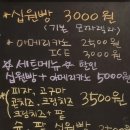 ☆십원빵 3000원
(기본 모짜렐라)
*아메리카노 2500원
ICE 3000원
☆세트메뉴☆ 할인
십원빵+아메리카노 5000원
*피자, 고구마
콘치즈, 크림치즈 3500원
크림치즈+팥